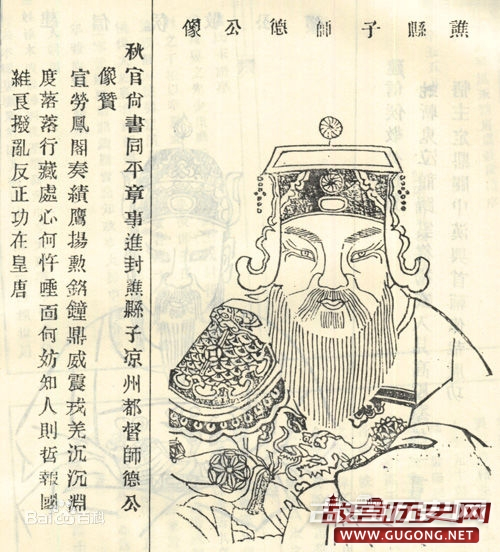 譙縣子師德公像
秋官尙書同平章事進封譙縣子凉州都督師德公
像贊
宜勞鳳閣奏績鷹揚勲銘鐘鼎威震戎羌沉沉淵
度落落行藏處心何忤唾面何妨知人則哲報國
維良撥亂反正功在皇唐
Baidu百科
故宫历史网
WWW.GUGONG.NET